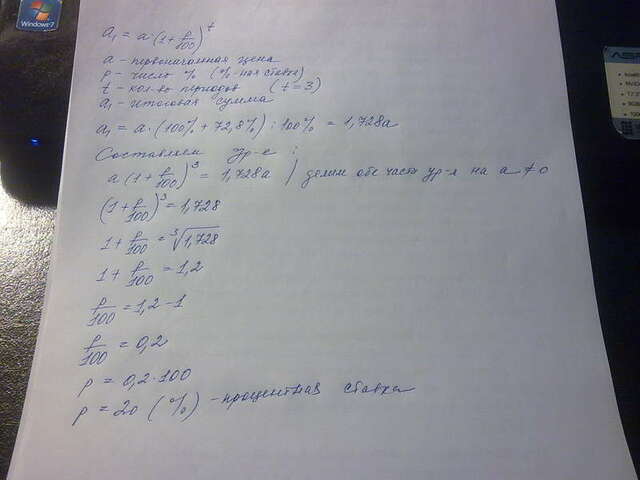 a₁ = a (1 + p/100)^t
a - первоначальная цена
p - число % (%-ная ставка)
t - кол-во периодов (t = 3)
a₁ - итоговая сумма
a₁ = a · (100% + 72,8%) : 100% = 1,728a
Составляем ур-е :
a (1 + p/100)³ = 1,728a / делим обе части ур-я на a ≠ 0
(1 + p/100)³ = 1,728
1 + p/100 = ³√1,728
1 + p/100 = 1,2
p/100 = 1,2 - 1
p/100 = 0,2
p = 0,2 · 100
p = 20 (%) - процентная ставка
Windows 7